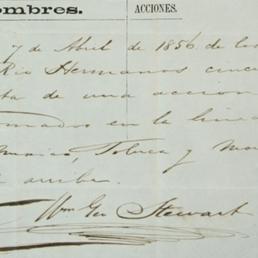 ombres. ACCIONES.
7 de Abril de 1856 de los
Rio Hermanos cinc
ta de una accion
omados en la linea
Toluca y Mo
arriba.
Wm Geo Stewart